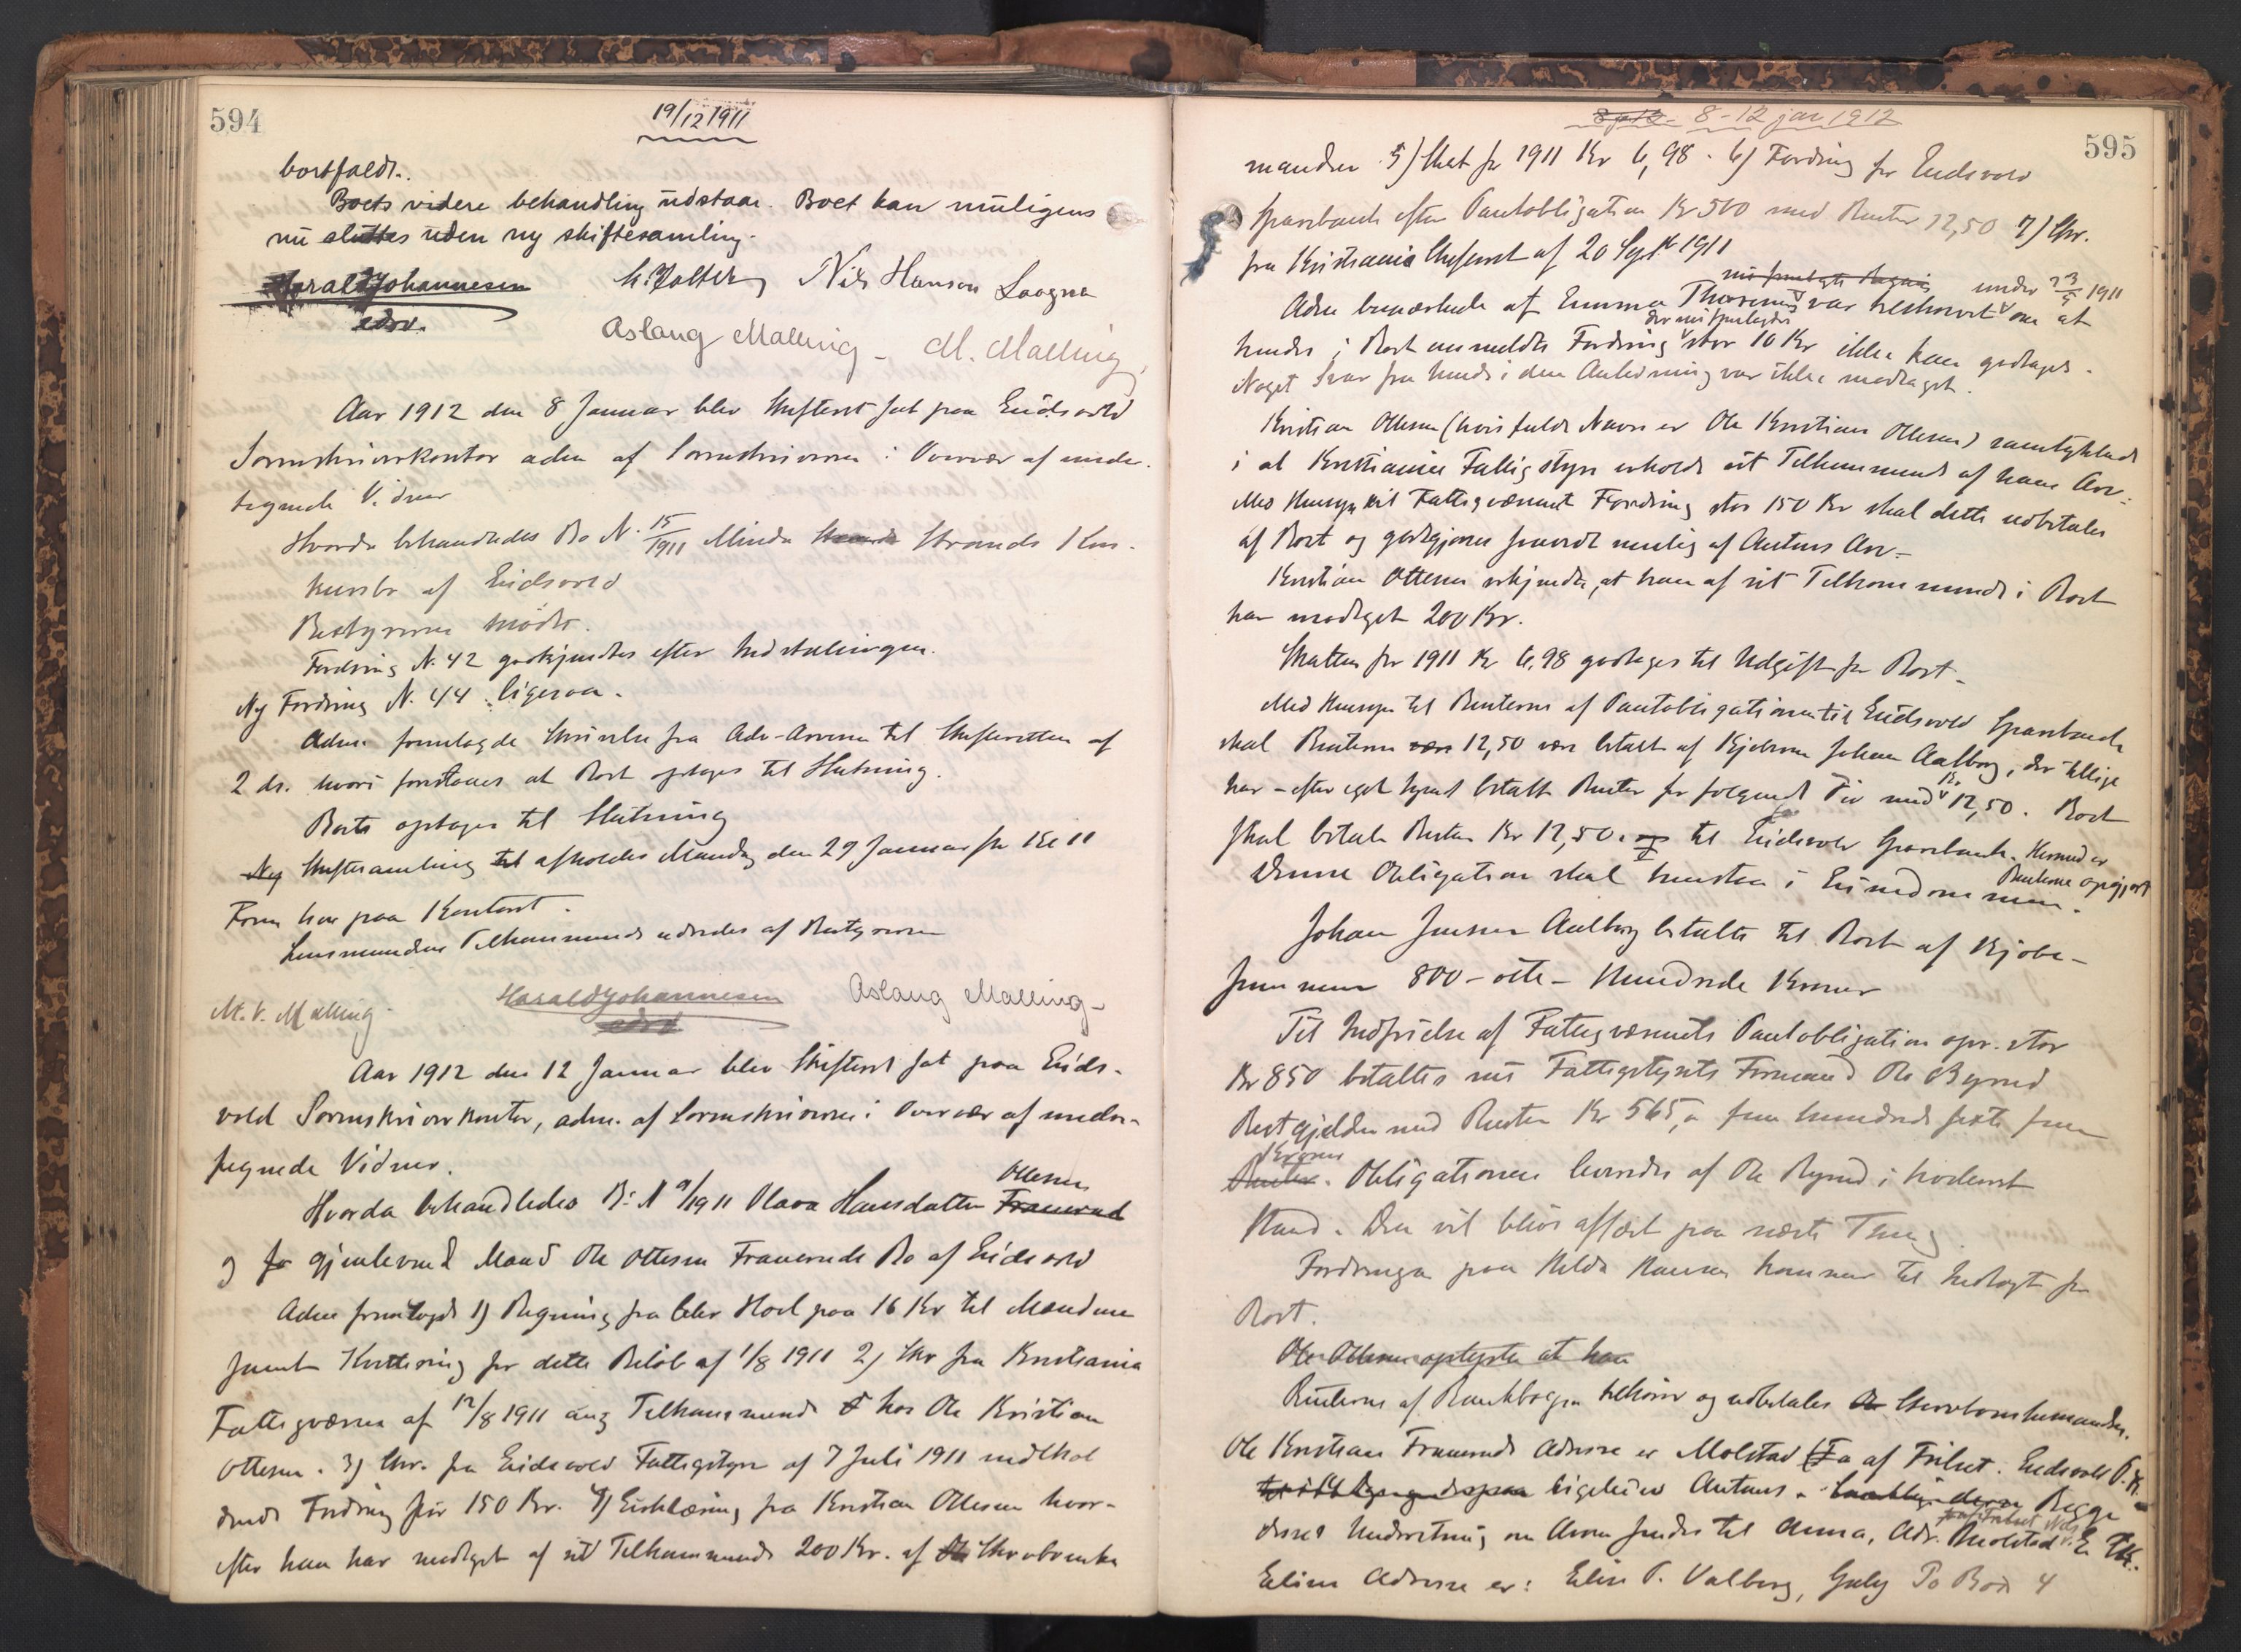 594
19/12 1911
bortfaldt.
Boets videre behandling udstaar. Boet kan muligens
nu sluttes uden ny skiftesamling.
Harald Johannesen Nils Hansen Laagna
edsv.
Aslaug Malling - M. Malling
Aar 1912 den 8 Januar blev Skifteret sat paa Eidsvold
Sorenskriverkontor adm af Sorenskriveren i Overvær af under-
tegnede Vidner
Hvorda behandledes Bo N. 15/1911 Minda Strands Kon-
kursbo af Eidsvold
Bestyreren mødte.
Fordring N. 42 godkjendtes efter Indstillingen.
Ny Fordring N. 44 ligesaa.
Adm. fremlagde Skrivelse fra Adv. Arnesen til Skifteretten af
2 ds. hvori foreslaaes at Boet optages til Slutning.
Boet optages til Slutning
Ny Skiftesamling afholdes Mandag den 29 Januar fm Kl 11
Form her paa Kontoret.
Lensmandens Tilkommende udredes af Bestyreren
M. V. Malling Harald Johannesen Aslaug Malling -
edsv
Aar 1912 den 12 Januar blev Skifteret sat paa Eids-
vold Sorenskriverkontor, adm. af Sorenskriveren i Overvær af under-
tegnede Vidner.
Ottesen
Hvorda behandledes Bo N 9/1911 Olava Hansdatter Frauerud
og gjenlevende Mand Ole Ottesen Fraueruds Bo af Eidsvold
Adm fremlagde 1) Regning fra Hoel paa 16 Kr til Manden
samt Kvittering for dette Beløb af 1/8 1911 2) Skr fra Kristiania
Fattigvæsen af 12/8 1911 ang Tilkommende hos Ole Kristian
Ottesen. 3) Skr. fra Eidsvold Fattigstyre af 7 Juli 1911 indehol-
dende Fordring for 150 Kr. 4) Erklæring fra Kristian Ottesen hvor-
efter han har modtaget af sit Tilkommende 200 Kr. af Skrabanke
8 - 12 jan 1912
595
manden 5) Skat for 1911 Kr 6,98. 6) Fordring fra Eidsvold
Sparebank efter Pantobligation Kr 500 med Renter 12,50 7) Skr.
fra Kristiania Skifteret af 20 Sept 1911
under 23/9 1911
Adm bemærkede at Emma var tilskrevet om at
hendes i Boet anmeldte Fordring stor 10 Kr ikke kan godtages.
Noget Svar fra hende i den Anledning var ikke modtaget.
Kristian Ottesen (hvis fulde Navn er Ole Kristian Ottesen) samtykkede
i at Kristiania Fattigstyre erholdt sit Tilkommende af hans Arv.
Med Hensyn til Fattigvæsenets Fordring stor 150 Kr skal dette udbetales
af Boet og godtgjøres fornemlig af Antons Arv -
Kristian Ottesen erkjendte, at han af sit Tilkommende i Boet
har modtaget 200 Kr.
Skatten for 1911 Kr 6,98 godtages til Udgift for Boet.
Med Hensyn til Renterne af Pantobligationen til Eidsvold Sparebank
skal Renterne 12,50 være betalt af Kjøberen Johan Aalborg, der tillige
har - efter eget Sigende betalt Renter for følgende Tid med Kr 12,50. Boet
skal betale Renter Kr 12,50 til Eidsvold Sparebank. Hermed er
Renterne opgjort
Denne Obligation skal henstaa i Eiendommen.
Johan Jensen Aalborg betalte til Boet af Kjøbe-
summen 800 - otte - Hundrede Kroner
Til Indfrielse af Fattigvæsenets Pantobligation opr. stor
Kr 850 betaltes nu Fattigstyrets Formand Ole Byrud
Restgjælden med Renter Kr 565, fem hundrede seksti fem
Kroner
Renter. Obligationen leveredes af Ole Byrud i kvitteret
Stand. Den vil blive aflæst paa næste Thing.
Fordringen paa Hilda Hansen kommer til Indtægt for
Boet.
Ole Ottesen oplyste at han
Renterne af Bankbogen tilhører og udbetales Skrabankemanden.
Ole Kristian Frauerud Adresse er Molstad af Frilset. Eidsvold P.K.
ligeledes Antons. Begge
disses Underretning om Arven sendes til Anna, Adr. Molstad E. P.K.
Elises Adresse er: Elise P. Valberg, Guly Po Box 4